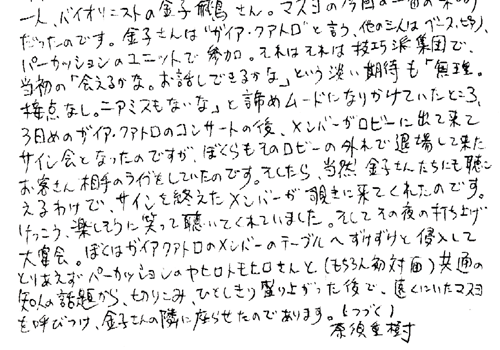 一人、バイオリニストの金子飛鳥さん。マスヨの今回の一番の楽しみ
だったのです。金子さんは“ガイア・クアトロ”と言う、他の三人はベース、ピアノ、
パーカッションのユニットで参加。それはそれは技巧派集団で、
当初の「会えるかな。お話しできるかな」という淡い期待も「無理。
接点なし。ニアミスもないな」と諦めムードになりかけていたところ、
3日めのガイア・クアトロのコンサートの後、メンバーがロビーに出て来て
サイン会となったのですが、ぼくらもそのロビーの外れで退場して来た
お客さん相手のライヴをしていたのです。そしたら、当然金子さんたちにも聴こ
えるわけで、サインを終えたメンバーが覗きに来てくれたのです。
けっこう、楽しそうに笑って聴いてくれていました。そしてその夜の打ち上げ
大宴会。ぼくはガイアクアトロのメンバーのテーブルへずけずけと侵入して
とりあえずパーカッションのヤヒロトモヒロさんと(もちろん初対面)共通の
知人の話題から、切りこみ、ひとしきり盛り上がった後で、遠くにいたマスヨ
を呼びつけ、金子さんの隣に座らせたのであります。(つづく)
奈須重樹